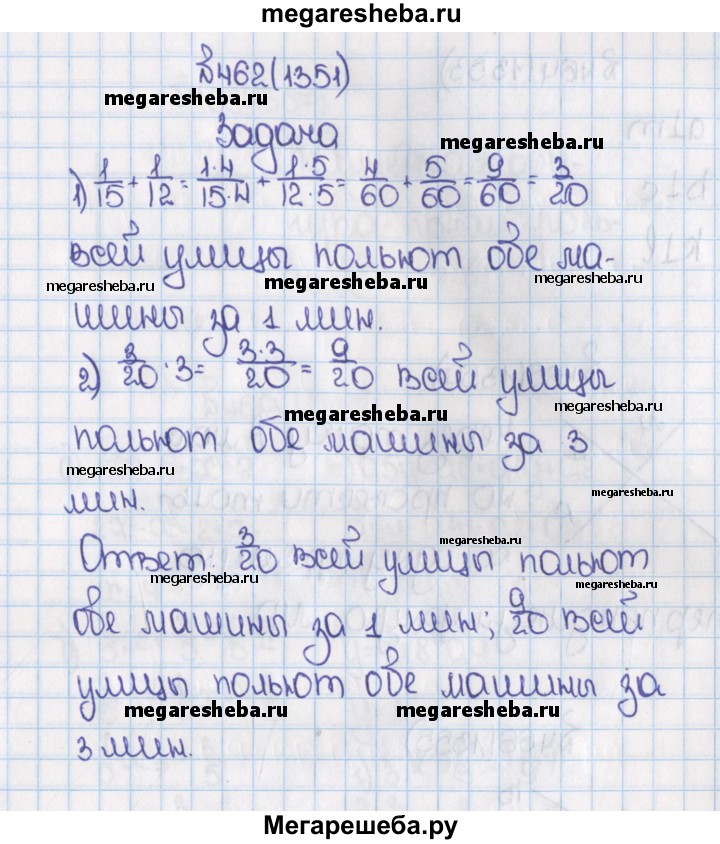 megaresheba.ru
№462(1351)
megaresheba.ru
Задача megaresheba.ru
1) 1/15 + 1/12 = 1·4/15·4 + 1·5/12·5 = 4/60 + 5/60 = 9/60 = 3/20
всей улицы польют обе ма-
megaresheba.ru megaresheba.ru megaresheba.ru
шины за 1 мин.
2) 3/20 · 3 = 3·3/20 = 9/20 всей улицы
megaresheba.ru megaresheba.ru
польют обе машины за 3
megaresheba.ru
мин. megaresheba.ru
megaresheba.ru
Ответ: 3/20 всей улицы польют
megaresheba.ru megaresheba.ru
обе машины за 1 мин; 9/20 всей
улицы польют обе машины за
megaresheba.ru megaresheba.ru
3 мин.
Мегарешеба.ру